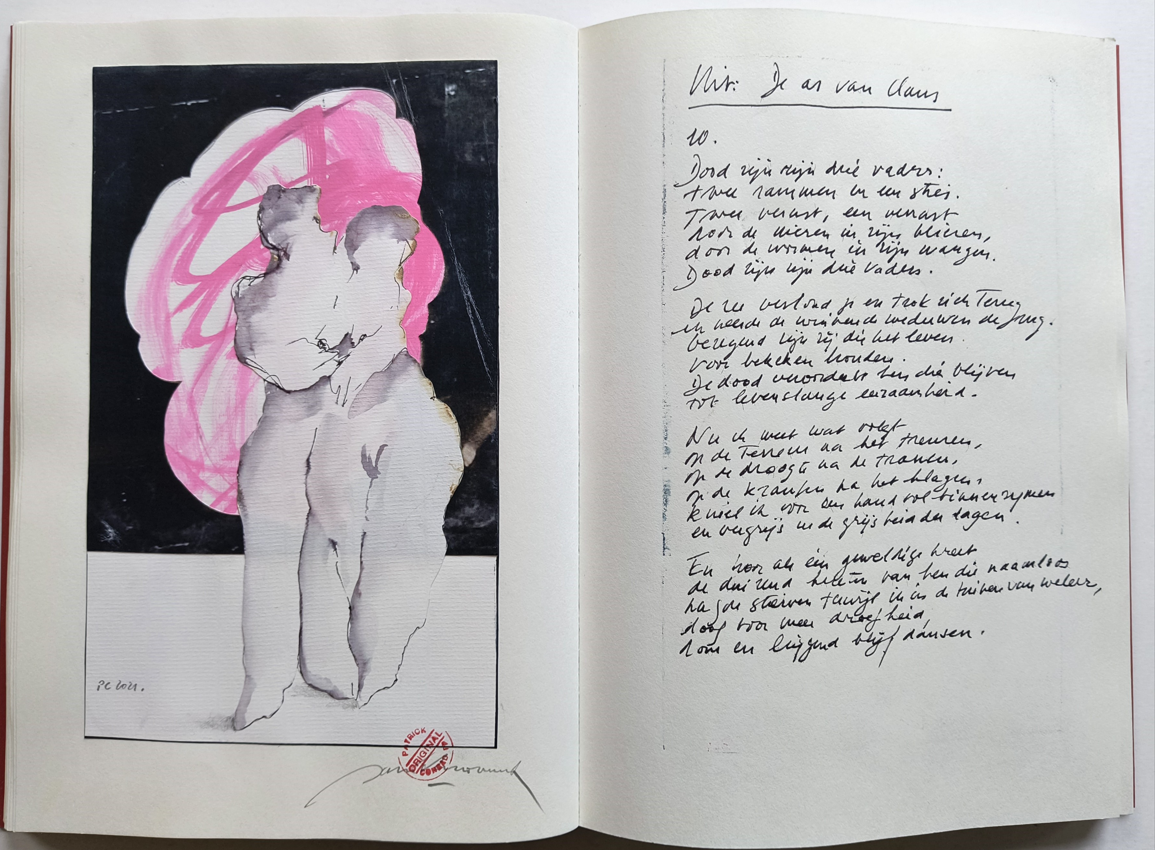 PC 2021.
PATRICK
ORIGINAL
CONRAD
Uit: De as van Claus
10.
Dood zijn mijn drie vaders:
twee rammen en een stier.
Twee verast, een verrast
door de nieren in zijn
door de wormen in zijn wangen.
Dood zijn mijn drie vaders.
De zee verslond ze en trok zich terug
en de weduwen de
zijn zij die het leven
voor bekeken houden.
De dood veroordeelt hen die blijven
tot levenslange eenzaamheid.
Nu ik weet wat volgt
op de na het treuren,
op de droogte na de tranen,
op de na het klagen,
kniel ik voor een hand vol binnenrijmen
en vergrijs in de grijsheid der dagen.
En hoor als één geweldige kreet
de duizend van hen die naamloos
terwijl in de tuinen van weleer,
doof voor meer droefheid
en liggend blijf dansen.